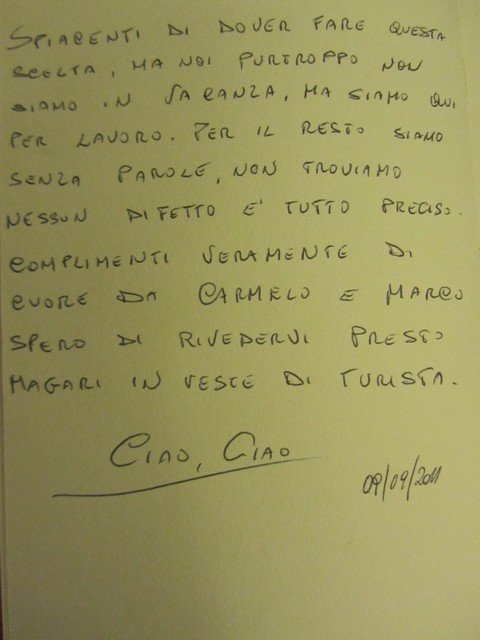 SPIACENTI DI DOVER FARE QUESTA
SCELTA, MA NOI PURTROPPO NON
SIAMO IN VACANZA, MA SIAMO QUI
PER LAVORO. PER IL RESTO SIAMO
SENZA PAROLE, NON TROVIAMO
NESSUN DIFETTO E' TUTTO PRECISO.
COMPLIMENTI VERAMENTE DI
CUORE DA CARMELO E MARCO
SPERO DI RIVEDERVI PRESTO
MAGARI IN VESTE DI TURISTA.
CIAO, CIAO
09/09/2011